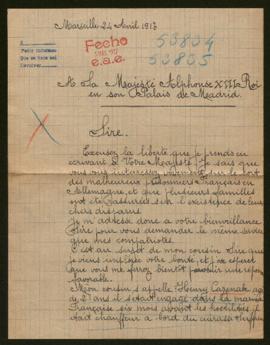 Marseille 24 Avril 1917
Fecho
e.a.e.
53804
53805
A
Pedir informes
Que se haga
A Sa Majesté Alphonse XIII Roi
en son Palais de Madrid.
Sire.
Excusez la liberté que je prends en
écrivant à Votre Majesté, je sais que
vous vous intéressez vivement sur le sort
des malheureux prisonniers Français en
Allemagne, et que plusieurs familles
ont été rassurées sur l'existence de leur
chers disparus
Je m'adresse donc à votre bienveillance
Sire pour vous demander le même service
que mes compatriotes.
C'est au sujet de mon cousin Sire que
je viens implorer votre bonté, et j'ai espoir
que vous me ferez bientôt parvenir une réponse
favorable.
Mon cousin s'appelle Henry Cazenak âgé
de 21 ans il s'était engagé dans la marine
Française six mois avant les hostilités il
était chauffeur à bord du cuirassé